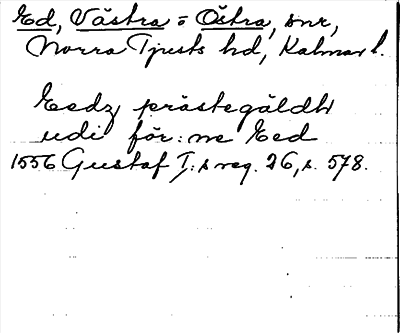 Ed, Västra = Östra, snr,
Norra Tjusts hd, Kalmar l.
Eedz prästegäldh
udi för: ne Eed
1556 Gustaf I:s reg. 26, s. 578.